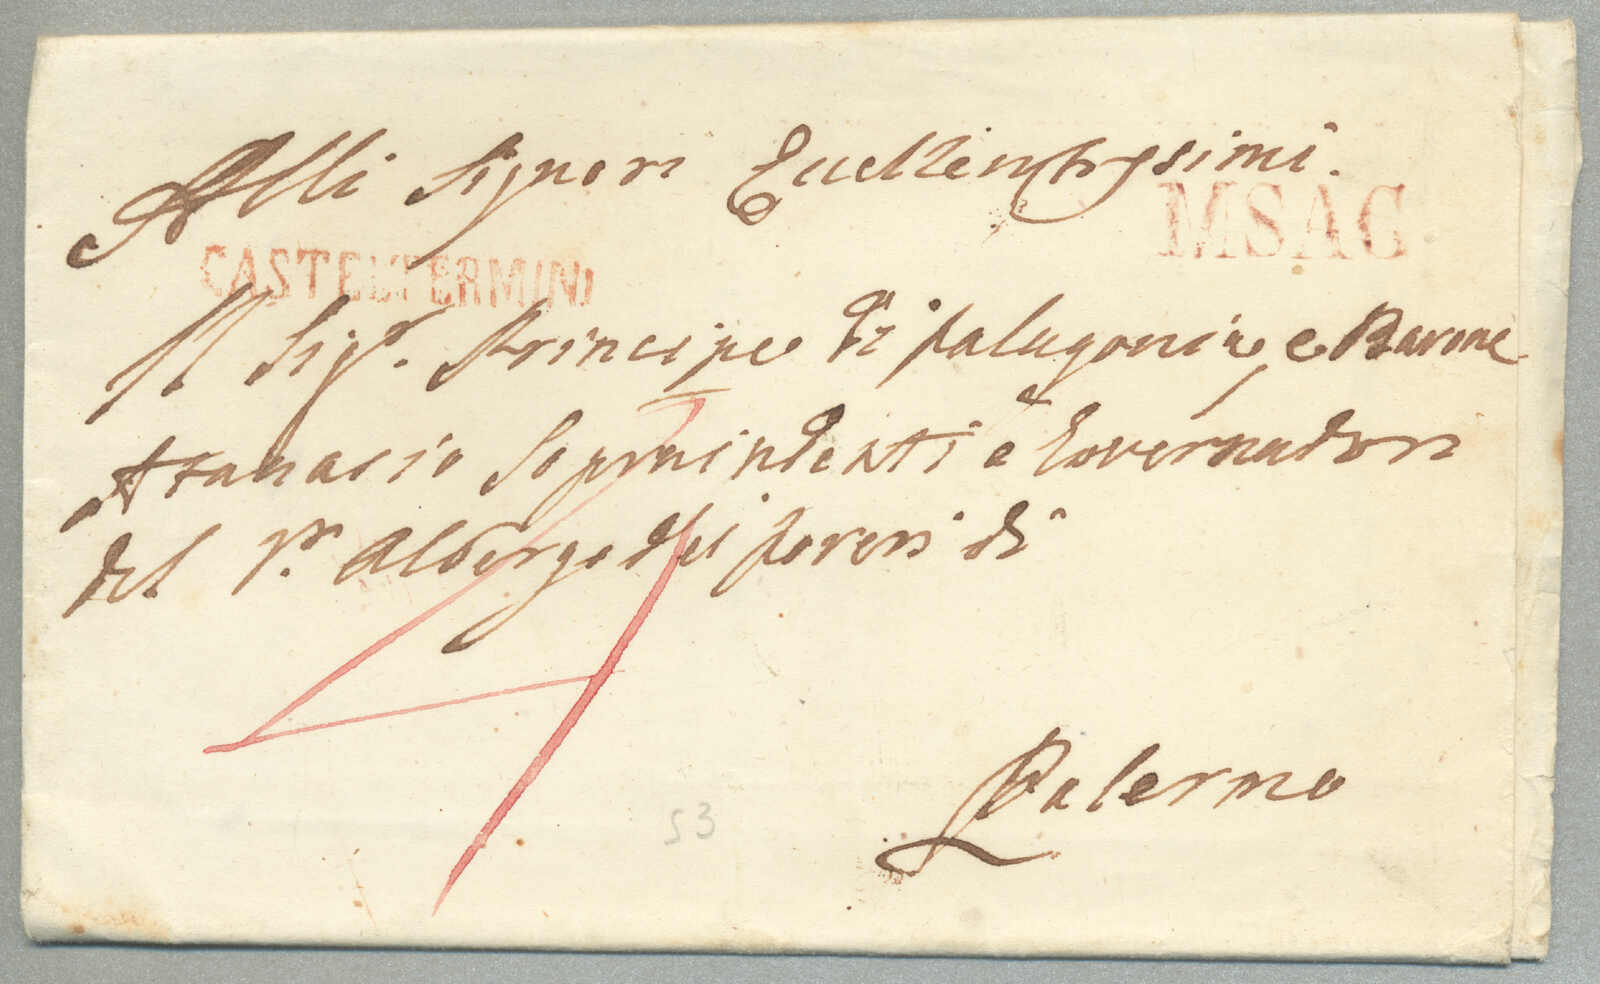 Alli Signori Eccellentissimi.
MSAG
CASTELTERMINI
Il Sigr. Principe di Palagonia, e Barone
Atanasio Sopraindenti e Governadori
del Rr. Albergo dei poveri di
4
Palermo
53